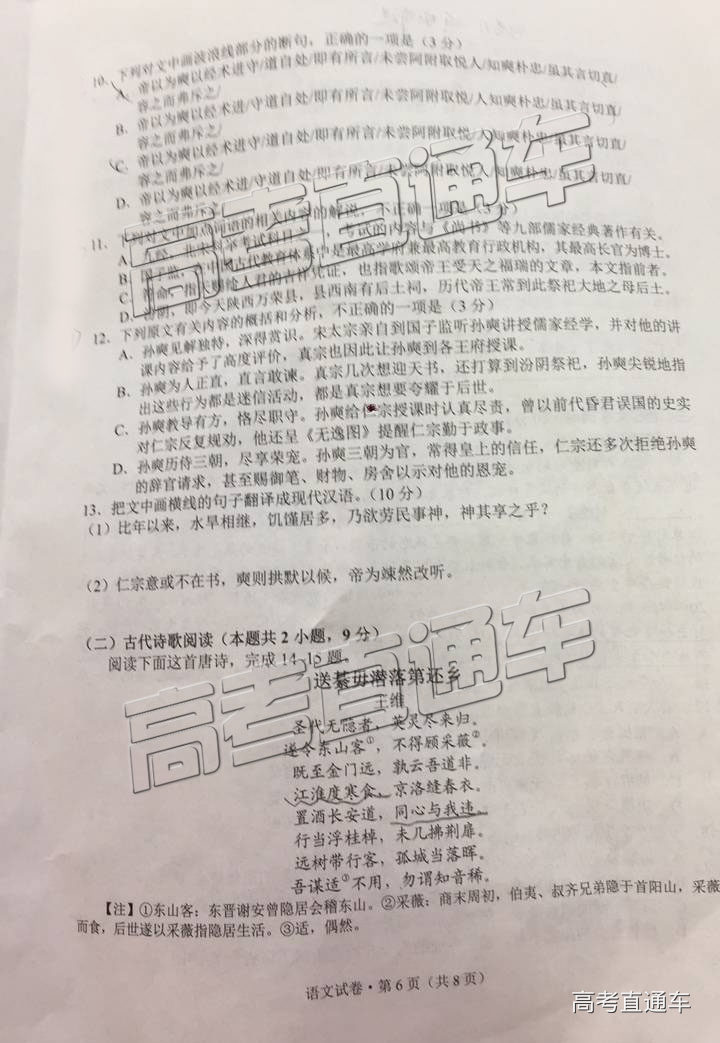 10. 下列对文中画波浪线部分的断句，正确的一项是（3分）
A. 帝以为奭以经术进守/道自处/即有所言/未尝阿附取悦人/知奭朴忠/虽其言切直/
容之而弗斥之/
B. 帝以为奭以经术进/守道自处/即有所言/未尝阿附取悦/人知奭朴忠/虽其言切直/
容之而弗斥之/
C. 帝以为奭以经术进/守道自处/即有所言/未尝阿附取悦人/知奭朴忠/虽其言切直/
容之而弗斥之/
D. 帝以为奭以经术进/守道自处/即有所言/未尝阿附取悦/人知奭朴忠/虽其言切直/
容之而弗斥之/
11. 下列对文中加点词语的相关内容的解说，不正确一项（3分）
A. 九经，北宋科举考试科目，考试的内容与《尚书》等九部儒家经典著作有关。
B. 国子监，中国古代教育体系中是最高学府兼最高教育行政机构，其最高长官为博士。
C. 符命，指天赐给人君的吉祥凭证，也指歌颂帝王受天之福瑞的文章，本文指前者。
D. 汾阴，即今天陕西万荣县，县西南有后土祠，历代帝王常到此祭祀大地之母后土。
12. 下列原文有关内容的概括和分析，不正确的一项是（3分）
A. 孙奭见解独特，深得赏识。宋太宗亲自到国子监听孙奭讲授儒家经学，并对他的讲
课内容给予了高度评价，真宗也因此让孙奭到各王府授课。
B. 孙奭为人正直，直言敢谏。真宗几次想迎天书，还打算到汾阴祭祀，孙奭尖锐地指
出这些行为都是迷信活动，都是真宗想要夸耀于后世。
C. 孙奭教导有方，恪尽职守。孙奭给仁宗授课时认真尽责，曾以前代昏君误国的史实
对仁宗反复规劝，他还呈《无逸图》提醒仁宗勤于政事。
D. 孙奭历侍三朝，尽享荣宠。孙奭三朝为官，常得皇上的信任，仁宗还多次拒绝孙奭
的辞官请求，甚至赐御笔、财物、房舍以示对他的恩宠。
13. 把文中画横线的句子翻译成现代汉语。（10分）
（1）比年以来，水旱相继，饥馑居多，乃欲劳民事神，神其享之乎？
（2）仁宗意或不在书，奭则拱默以候，帝为竦然改听。
（二）古代诗歌阅读（本题共2小题，9分）
阅读下面这首唐诗，完成14-15题。
送綦毋潜落第还乡
王维
圣代无隐者，英灵尽来归。
遂令东山客①，不得顾采薇②。
既至金门远，孰云吾道非。
江淮度寒食，京洛缝春衣。
置酒长安道，同心与我违。
行当浮桂棹，未几拂荆扉。
远树带行客，孤城当落晖。
吾谋适③不用，勿谓知音稀。
【注】①东山客：东晋谢安曾隐居会稽东山。②采薇：商末周初，伯夷、叔齐兄弟隐于首阳山，采薇
而食，后世遂以采薇指隐居生活。③适，偶然。
语文试卷·第6页（共8页）
高考直通车
高考直通车
高考直通车